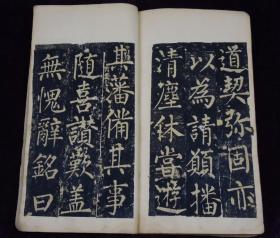 道契弥固亦
以為請願播
清塵休嘗遊
其藩備其事
隨喜讚歎盖
無愧辭銘曰